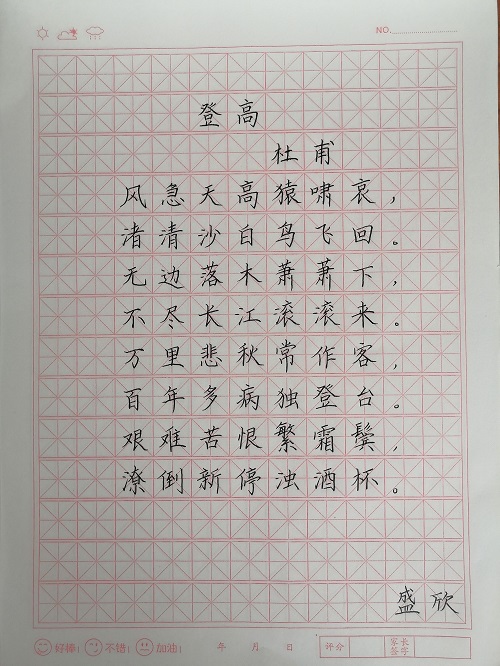 NO.
登高
杜甫
风急天高猿啸哀，
渚清沙白鸟飞回。
无边落木萧萧下，
不尽长江滚滚来。
万里悲秋常作客，
百年多病独登台。
艰难苦恨繁霜鬓，
潦倒新停浊酒杯。
盛欣
好棒： 不错： 加油： 年 月 日 评分 家长签字